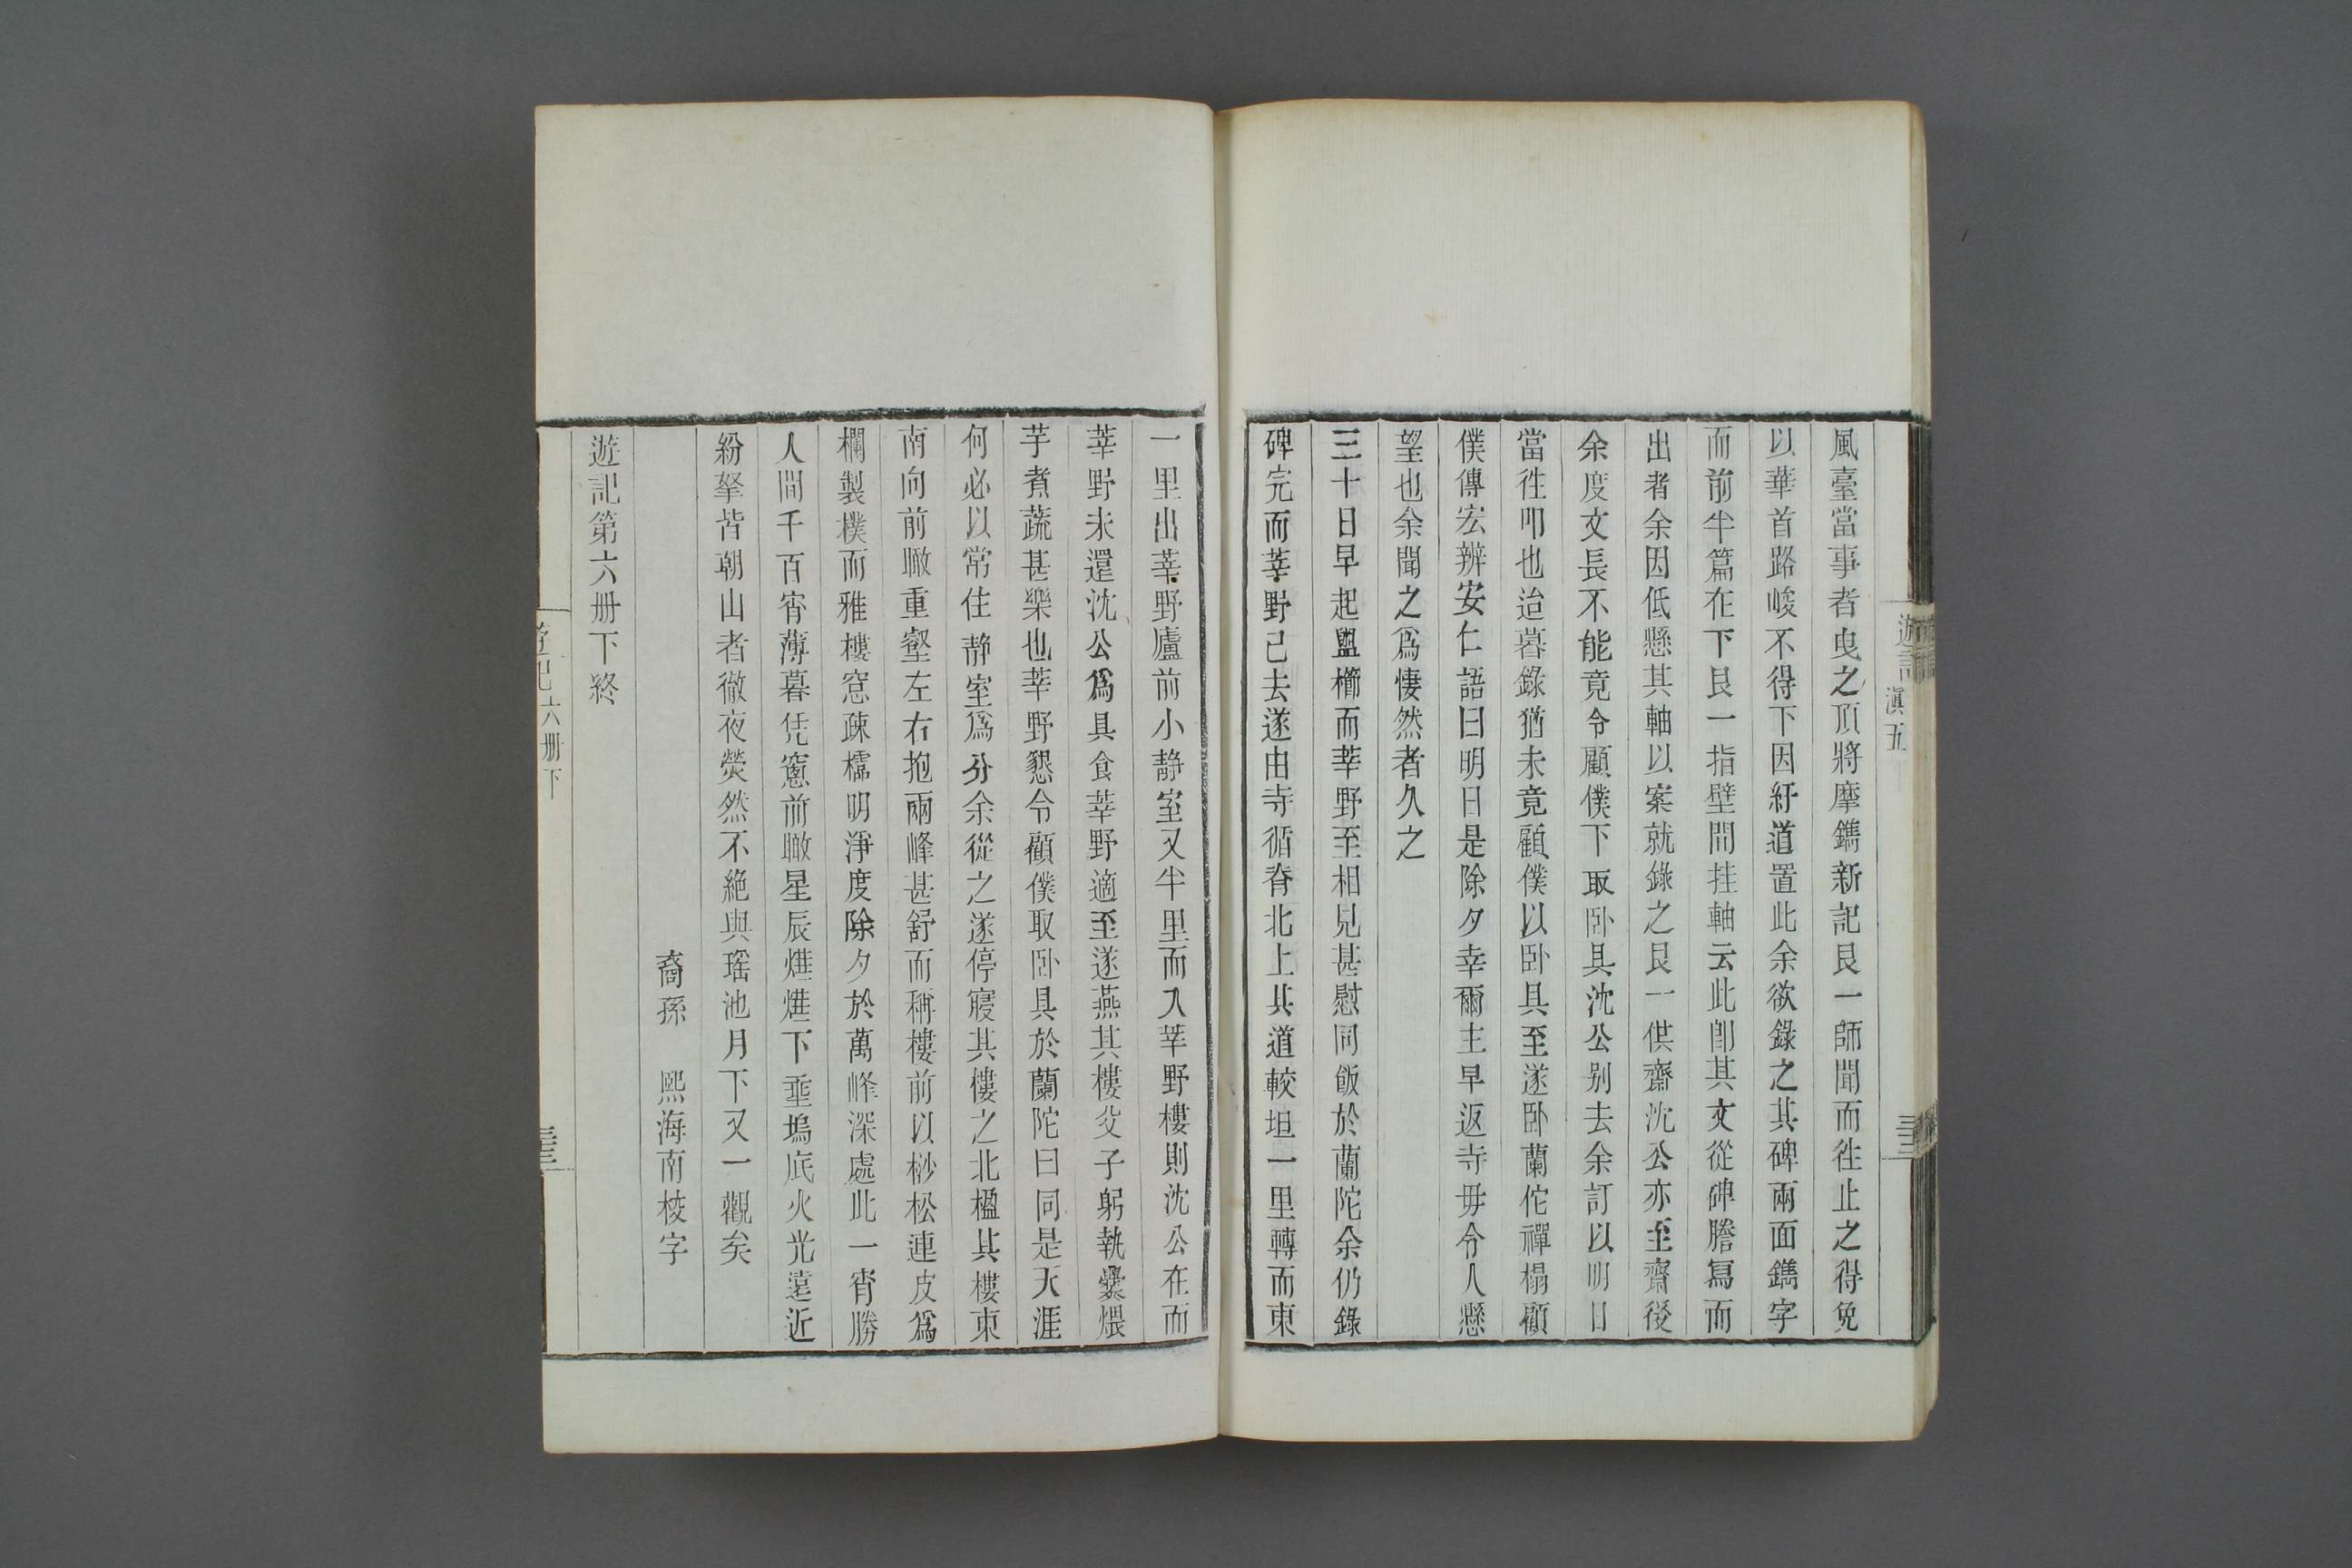 遊記 滇五 三十三
風臺當事者曳之頂將摩鐫新記艮一師聞而徃止之得免
以華首路峻不得下因紆道置此余欲錄之其碑兩面鐫字
而前半篇在下艮一指壁間挂軸云此卽其文從碑謄寫而
出者余因低懸其軸以案就錄之艮一供齋沈公亦至齋後
余度文長不能竟令顧僕下取卧具沈公别去余訂以明日
當徃叩也迨暮錄猶未竟顧僕以卧具至遂卧蘭佗禪榻顧
僕傳宏辨安仁語曰明日是除夕幸爾主早返寺毋令人懸
望也余聞之爲悽然者久之
三十日早起盥櫛而莘野至相見甚慰同飯於蘭陀余仍錄
碑完而莘野己去遂由寺循脊北上其道較坦一里轉而東
一里出莘野廬前小静室又半里而入莘野樓則沈公在而
莘野未還沈公爲具食莘野適至遂燕其樓父子躬執爨煨
芋煮蔬甚樂也莘野懇令顧僕取卧具於蘭陀曰同是天涯
何必以常住静室爲分余從之遂停寢其樓之北楹其樓東
南向前瞰重壑左右抱兩峰甚舒而稱樓前以杪松連皮爲
欄製樸而雅樓窓疎櫺明淨度除夕於萬峰深處此一宵勝
人間千百宵薄暮凭窻前瞰星辰燁燁下垂塢底火光遠近
紛拏皆朝山者徹夜熒然不絶與瑶池月下又一觀矣
裔孫 熙海南梭字
遊記第六册下終
遊記六册下 三十三